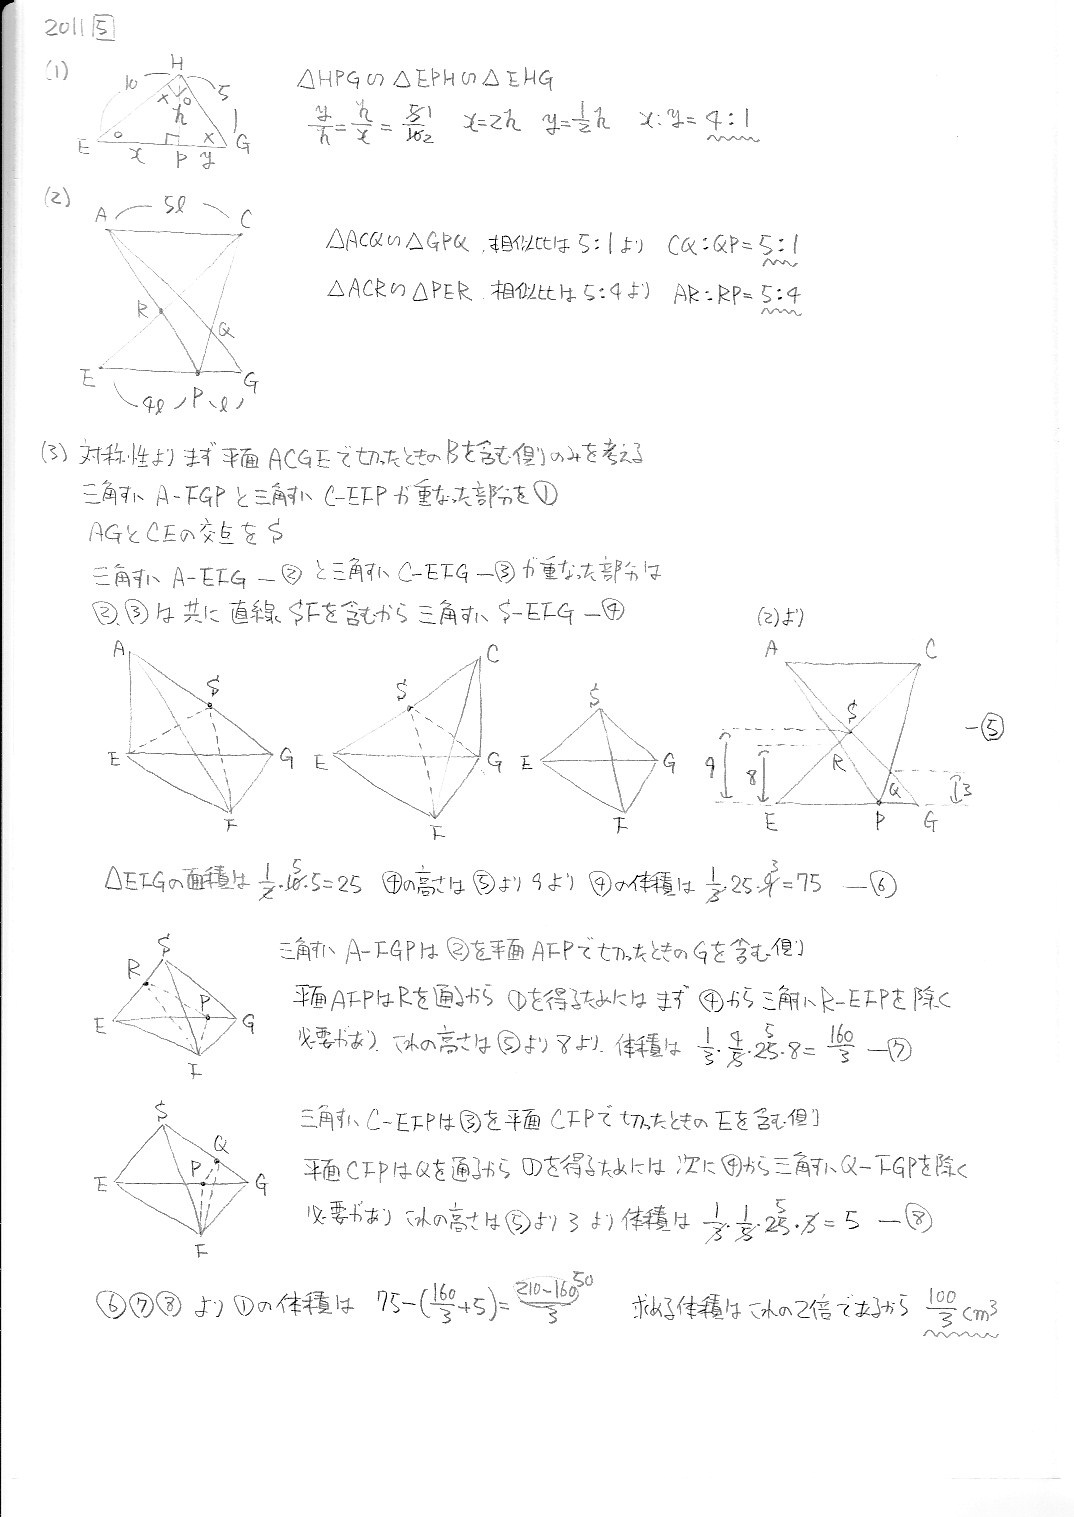 2011 5
(1)
H
10
5
x
o
h
1
E
o
x
G
x
P
y
△HPG∽△EPH∽△EHG
y/h = h/x = 5/10 1/2 x=2h y=1/2h x:y=4:1
(2)
A
5l
C
R
Q
E
P
G
4l
l
△ACQ∽△GPQ、相似比は5:1より CQ:QP=5:1
△ACR∽△PER、相似比は5:4より AR:RP=5:4
(3) 対称性よりまず平面ACGEで切ったときのBを含む側のみを考える
三角すい A-FGPと三角すい C-EFPが重なった部分を①
AGとCEの交点をS
三角すい A-EFG―②と三角すい C-EFG―③が重なった部分は
②、③は共に直線SFを含むから三角すい S-EFG―④
A
S
E
G
F
C
S
E
G
F
S
E
G
F
(2)より
A
C
S
―⑤
9
8
R
Q
3
E
P
G
△EFGの面積は 1/2・10・5=25 ④の高さは⑤より9より ④の体積は 1/3・25・9=75 ―⑥
S
R
P
E
G
F
三角すい A-FGPは②を平面AFPで切ったときのGを含む側
平面AFPはRを通るから ①を得るためにはまず④から三角すいR-EFPを除く
必要があり、これの高さは⑤より8より、体積は 1/3・4/5・25・8=160/3 ―⑦
S
Q
P
E
G
F
三角すい C-EFPは③を平面CFPで切ったときのEを含む側
平面CFPはQを通るから ①を得るためには次に④から三角すいQ-FGPを除く
必要があり これの高さは⑤より3より 体積は 1/3・1/5・25・3=5 ―⑧
⑥⑦⑧より①の体積は 75-(160/3+5)=210-160/3 50 求める体積はこれの2倍であるから 100/3 cm³